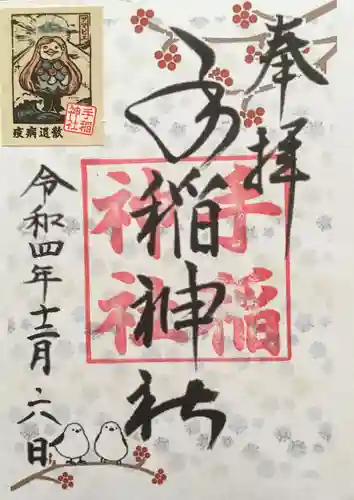 奉拝
手稲神社
手稲
神社
令和四年十二月二八日
アマビエ
手稲
神社
疫病退散